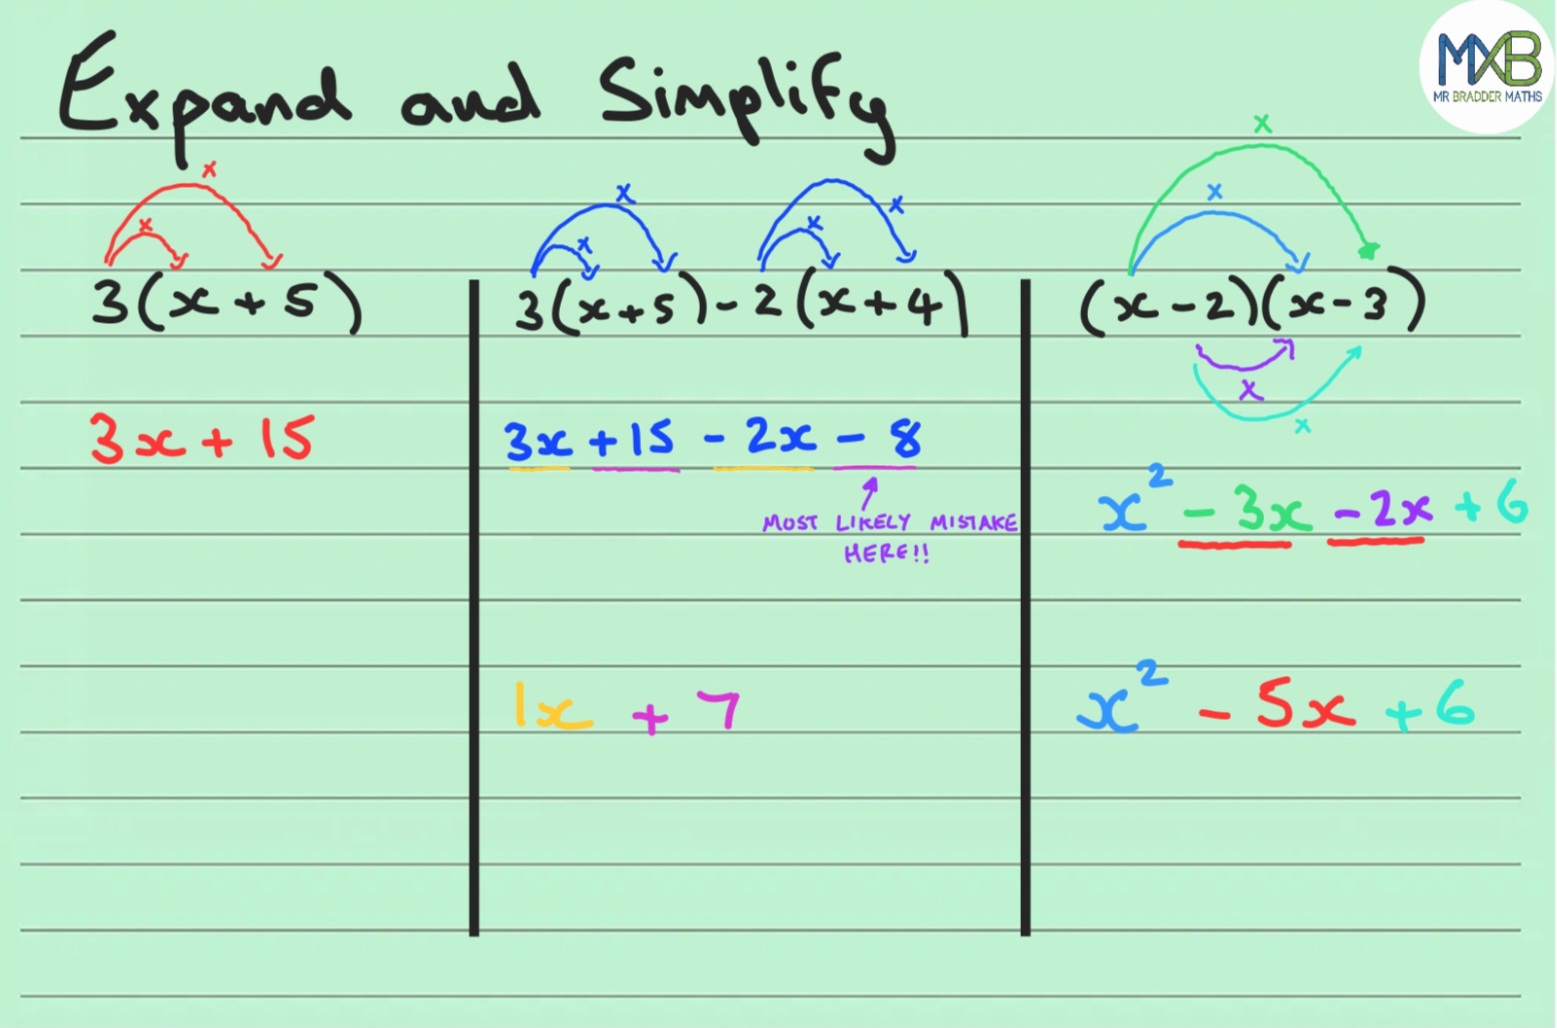 Expand and Simplify
MXB
MR BRADDER MATHS
x
x
3(x + 5)
3x + 15
x
x
x
x
3(x+5) - 2(x+4)
3x +15 - 2x - 8
MOST LIKELY MISTAKE
HERE!!
1x + 7
x
x
(x - 2)(x - 3)
x
x
x² - 3x - 2x + 6
x² - 5x + 6